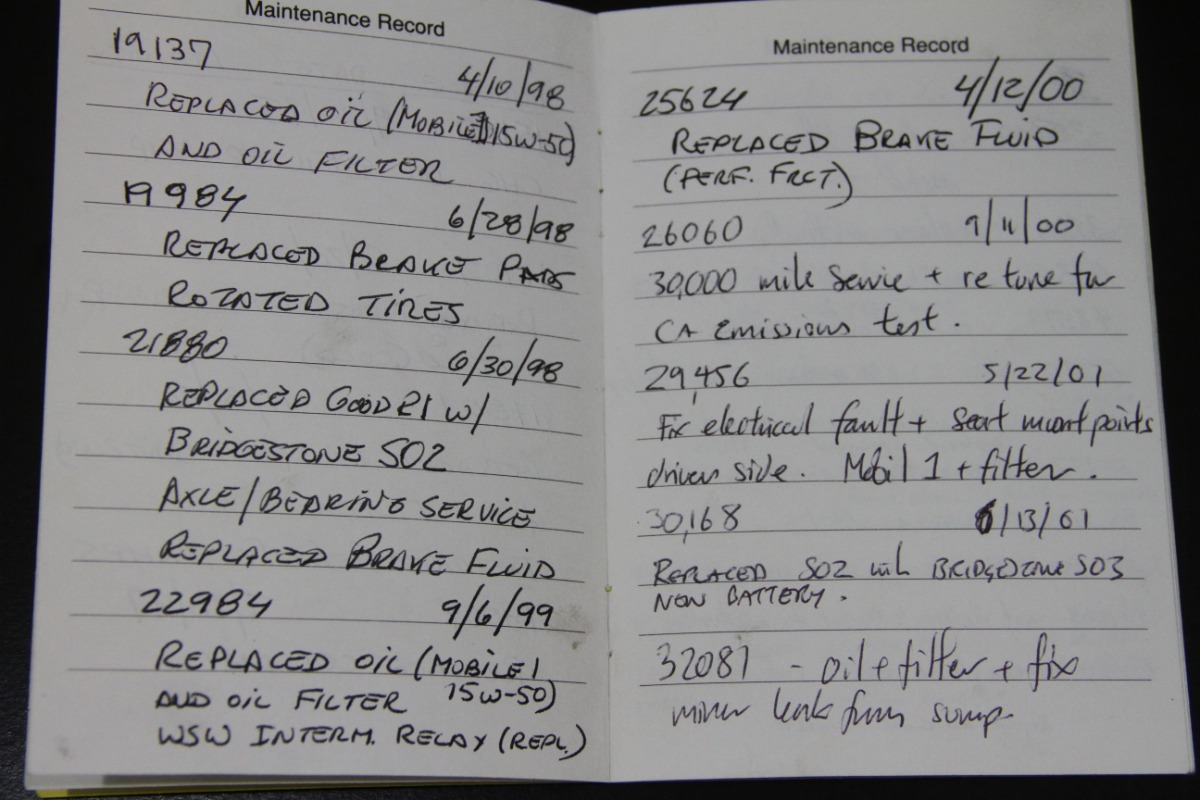 Maintenance Record
19137 4/10/98
REPLACED OIL (MOBILE 1 15W-50)
AND OIL FILTER
19984 6/28/98
REPLACED BRAKE PADS
ROTATED TIRES
21880 6/30/98
REPLACED GOODR1 W/
BRIDGESTONE SO2
AXLE/BEARING SERVICE
REPLACED BRAKE FLUID
22984 9/6/99
REPLACED OIL (MOBILE 1
AND OIL FILTER 15W-50)
WSW INTERM. RELAY (REPL.)
Maintenance Record
25624 4/12/00
REPLACED BRAKE FLUID
(PERF. FRCT.)
26060 9/11/00
30,000 mile service + retune for
CA Emissions test.
29,456 5/22/01
Fix electrical fault + seat mount points
driver side. Mobil 1 + filter.
30,168 6/13/01
REPLACED SO2 with BRIDGESTONE SO3
NEW BATTERY.
32081 - oil + filter + fix
minor leak from sump